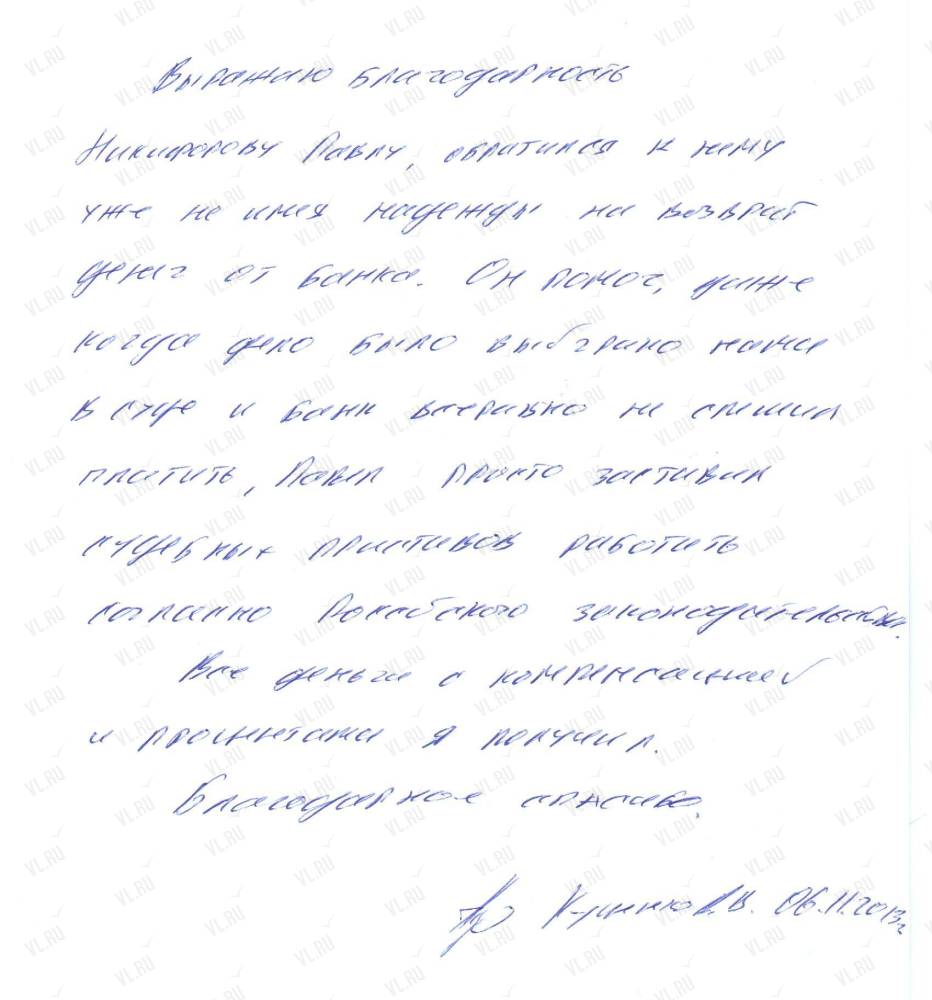 Выражаю благодарность
Никифорову Павлу, обратился к нему
уже не имея надежды на возврат
денег от банка. Он помог, даже
когда дело было выиграно нами
в суде и банк всеравно не спешил
платить, Павел просто заставил
судебных приставов работать
согласно Российского законодательства.
Все деньги с компенсацией
и процентами я получил.
Благодарное спасибо.
06.11.2013г
VL.RU